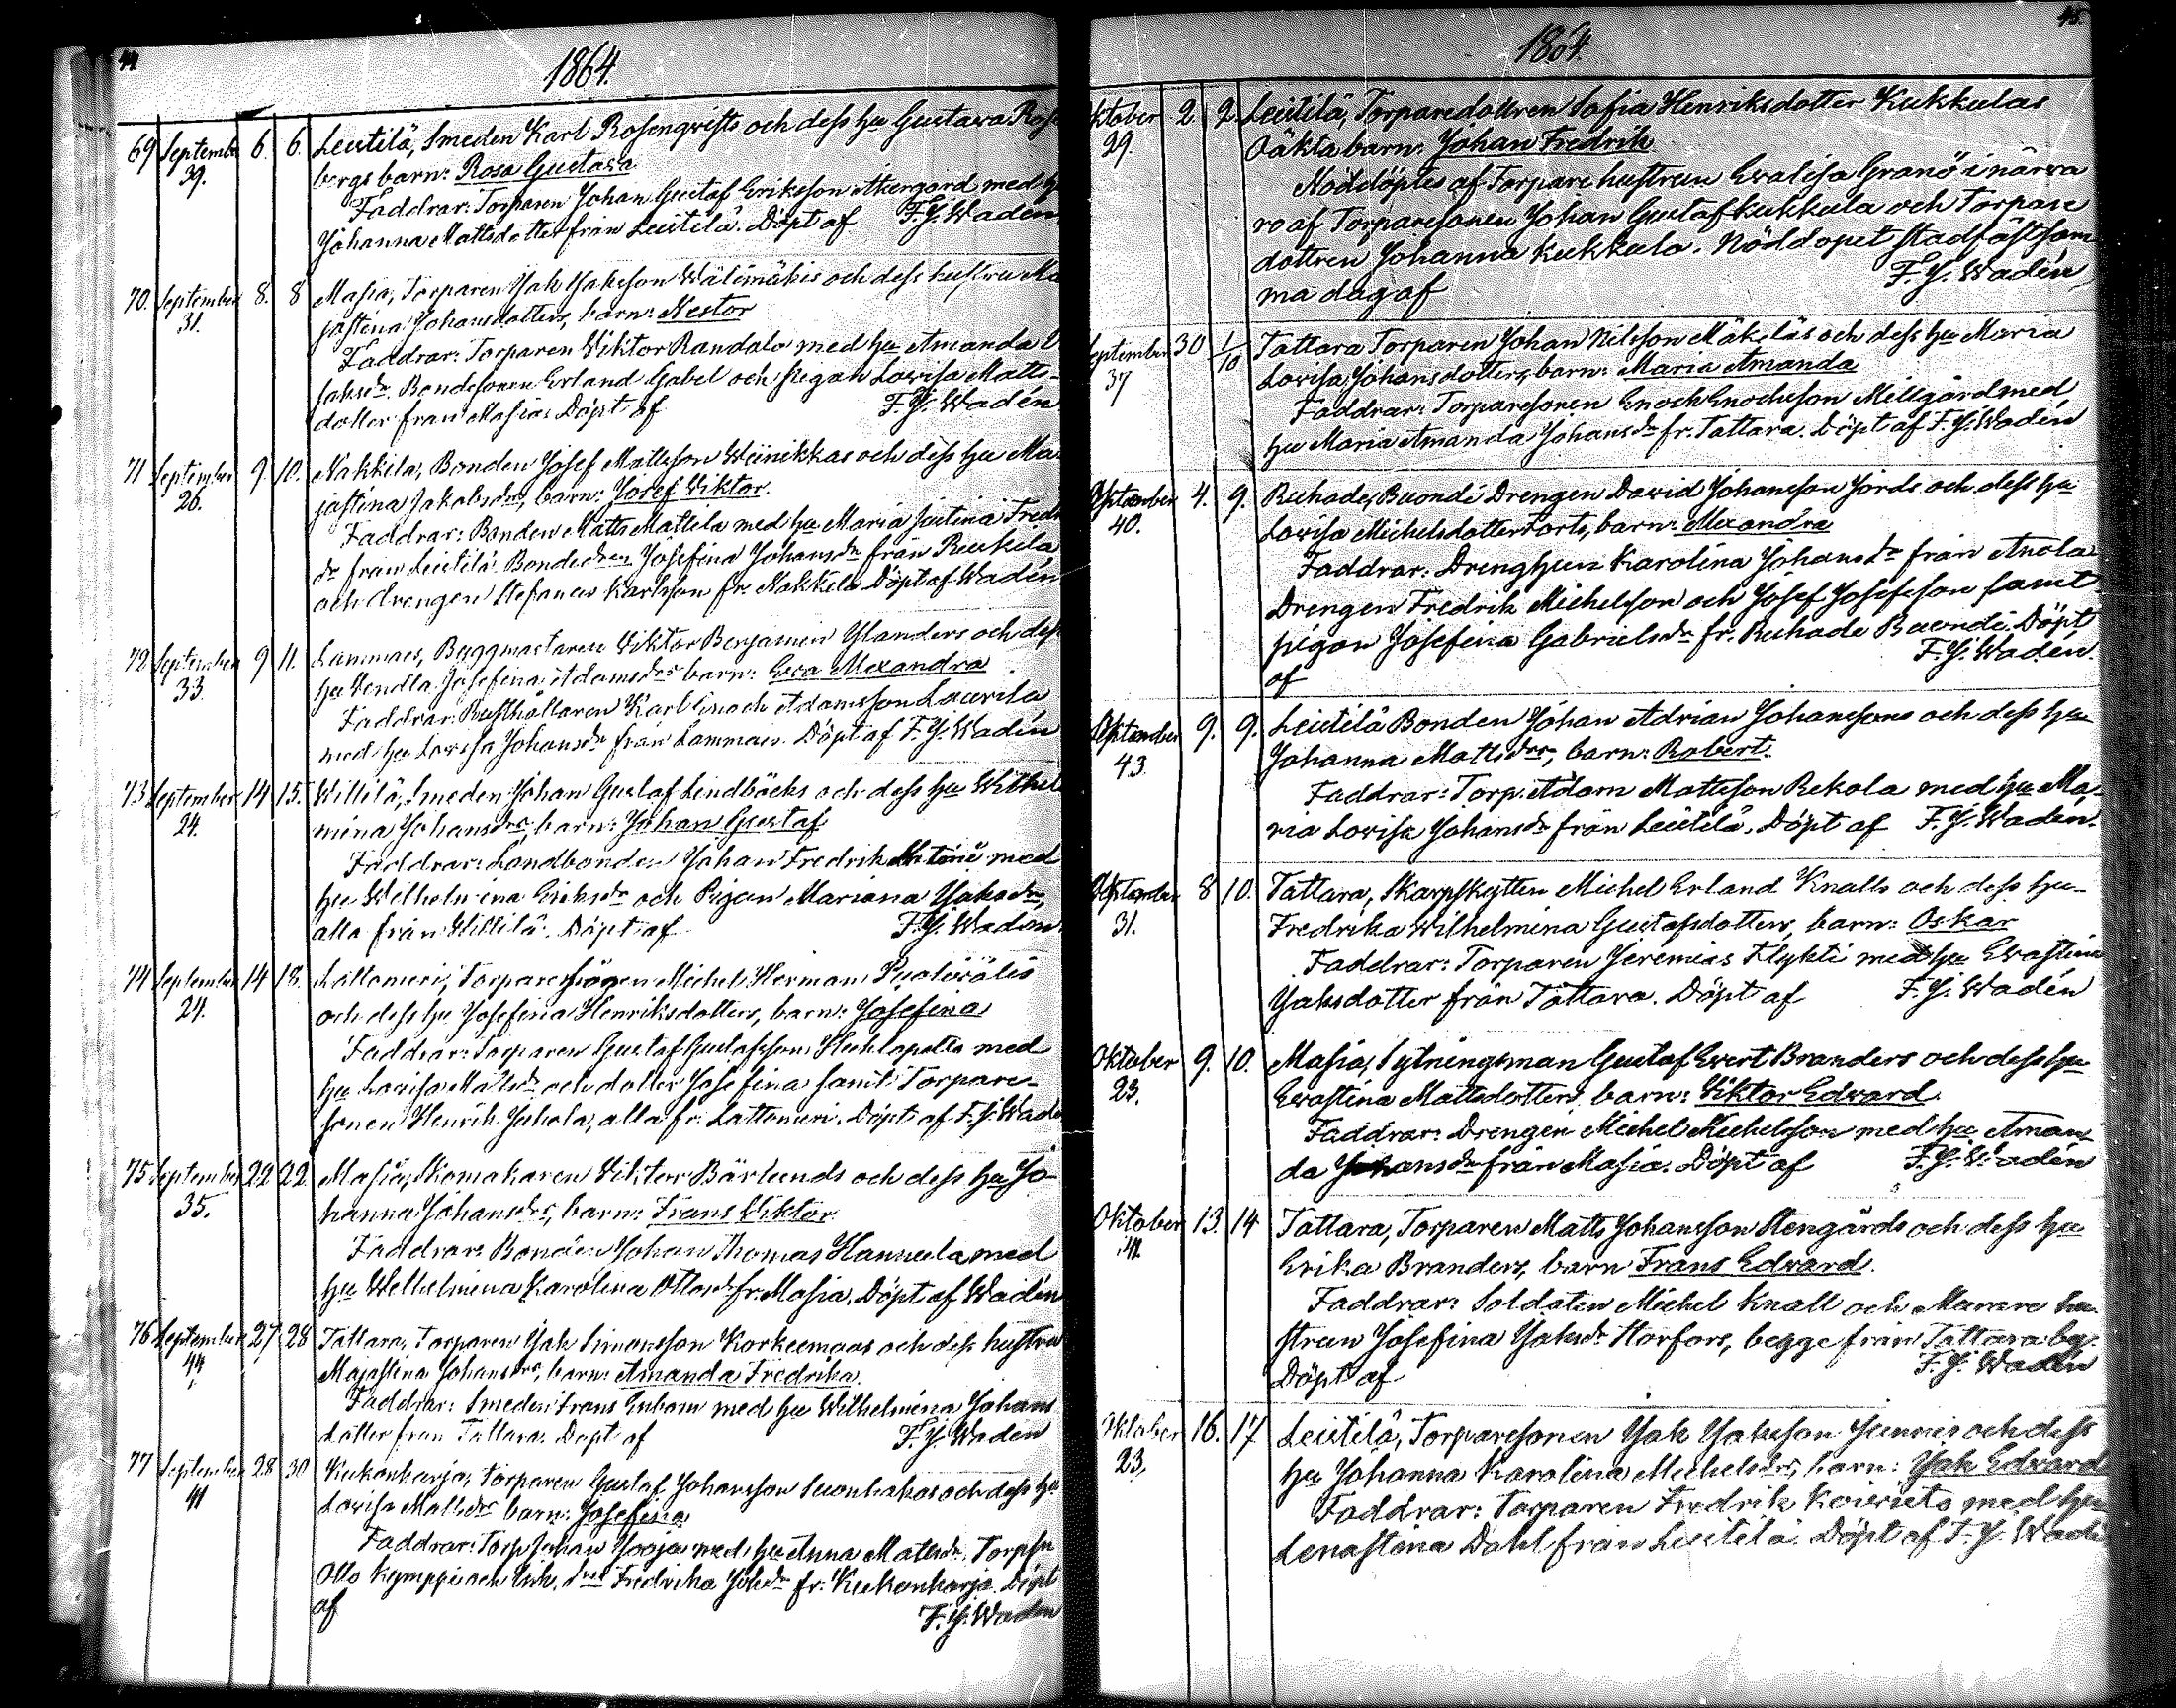 44
1864.
69 September 6. 6. Leistilä, Smeden Karl Rosenqvists och dess hu Gustava Rosen
39. bergs barn: Rosa Gustava
Faddrar: Torparen Johan Gustaf Eriksson Åkergård med h
Johanna Mattsdotter från Leistilä. Döpt af F. J. Wadén
70. September 8. 8 Masia, Torparen Isak Isaksson Wälimäkis och dess hustru Ma
31. jastina Johansdotters, barn: Nestor
Faddrar: Torparen Viktor Randala med hu Amanda
Isaksdr. Bondesonen Erland Gabel och pigan Lovisa Matts-
dotter från Masia. Döpt af F. J. Wadén
71 September 9. 10. Nakkila, Bonden Josef Mattsson Wiinikkas och dess hu Ma
26. jastina Jakobsdrs, barn: Josef Viktor.
Faddrar: Bonden Matts Mattila med hu Maria Justina Fredr
dr från Leistilä. Bondedren Josefina Johansdr från Ruskila
och drengen Stefanus Karlsson fr. Nakkila Döpt af Wadén
72 September 9 11. Lammais, Byggmästaren Viktor Benjamin Ylanders och dess
33. hu Vendla Josefina Adamsdrs barn: Eva Alexandra
Faddrar: Rusthållaren Karl Enoch Adamsson Laurila
med hu Lovisa Johansdr från Lammais. Döpt af F. J. Wadén
73 September 14 15. Villilä, Smeden Johan Gustaf Lindbäcks och dess hu Wilhel
24. mina Johansdrs, barn: Johan Gustaf
Faddrar: Landbonden Johan Fredrik med
hu Wilhelmina Eriksdr och Pigan Mariana Isaksdr,
alla från Villilä. Döpt af F. J. Wadén
74 September 14 18. Lattomeri, Torparemågen Michel Herman
24. och dess hu Josefina Henriksdotters, barn: Josefina
Faddrar: Torparen Gustaf Gustafsson med
hu Lovisa Matsdr och dotter Josefina samt Torpare-
sonen Henrik Juhola, alla fr. Lattomeri. Döpt af F. J. Wadé
75 September 22 22 Masia, Skomakaren Viktor Bärlunds och dess hu Jo-
35. hanna Johansdrs, barn: Frans Viktor.
Faddrar: Bonden Johan Thomas Hannula med
hu Wilhelmina Karolina Ottosdr fr. Masia. Döpt af Wadén
76 September 27 28 Tattara, Torparen Isak Simonsson Korkeemaas och dess hustru
44. Majastina Johansdrs, barn: Amanda Fredrika.
Faddrar: Smeden Frans Enbom med hu Wilhelmina Johans
dotter från Tattara. Döpt af F. J. Wadén
77 September 28 30 Kukonharja, Torparen Gustaf Johansson och dess hu
41 Lovisa Mattsdrs barn: Josefina
Faddrar: Torp. Johan med hu Anna Matsdr. Torpsn
Otto Kymppi och Fredrika Johdr fr. Kukonharja. Döpt
af F. J. Wadén
45.
1864.
Oktober 2 2. Leistilä, Torparedottren Sofia Henriksdotter Kukkulas
29. Oäkta barn: Johan Fredrik
Nöddöptes af Torpare hustrun Evalisa Granö i närva
ro af Torparesonen Johan Gustaf Kukkula och Torpare
dottren Johanna Kukkula. Nöddopet stadfäst sam
ma dag af F. J. Wadén
September 30 1/10 Tattara Torparen Johan Nilsson Mäkeläs och dess hu Maria
37 Lovisa Johansdotters, barn: Maria Amanda
Faddrar: Torparesonen Enoch Enochsson Millgård med
hu Maria Amanda Johansdr fr. Tattara. Döpt af F. J. Wadén
4. 9. Ruhade Buondi Drengen David Johansson Jords och dess hu
40. Lovisa Michelsdotter Torts, barn: Alexandra
Faddrar: Dreng hun Karolina Johansdr från Anola
Drengen Fredrik Michelsson och Josef Josefsson samt
pigan Josefina Gabrielsdr fr. Ruhade Buondi. Döpt
af F. J. Wadén.
9. 9. Leistilä Bonden Johan Adrian Johanssons och dess hu
43. Johanna Mattsdrs, barn: Robert.
Faddrar: Torp. Adam Mattsson Rekola med hu Ma-
ria Lovisa Johansdr från Leistilä. Döpt af F. J. Wadén.
8 10. Tattara, Skarpskytten Michel Erland Knalls och dess hu
31. Fredrika Wilhelmina Gustafsdotters, barn: Oskar
Faddrar: Torparen Jeremias Flykti med hu Evastina
Isaksdotter från Tattara. Döpt af F. J. Wadén
Oktober 9. 10. Masia, Sytningsman Gustaf Evert Branders och dess hu
23. Evastina Mattsdotters, barn: Viktor Edvard.
Faddrar: Drengen Michel Michelsson med hu Aman-
da Johansdr från Masia. Döpt af F. J. Wadén
Oktober 13. 14 Tattara, Torparen Matts Johansson Stengårds och dess hu
41. Erika Branders, barn Frans Edvard.
Faddrar: Soldaten Michel Knall och Murare hu
strun Josefina Isaksdr Storfors, begge från Tattara by.
Döpt af F. J. Wadén
Oktober 16. 17 Leistilä, Torparesonen Isak Isaksson Junnis och dess
23, hu Johanna Karolina Michelsdrs, barn: Isak Edvard
Faddrar: Torparen Fredrik Koivisto med hu
Lenastina Dahl från Leistilä. Döpt af F. J. Wadé